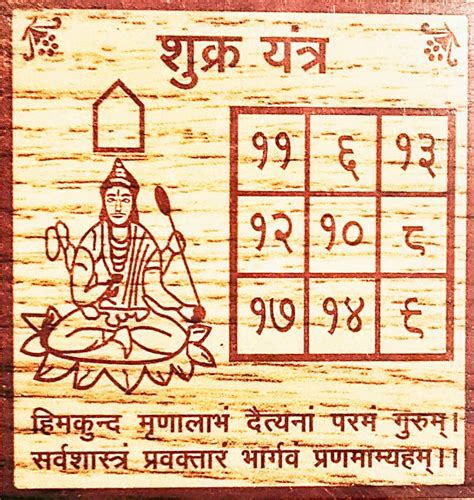 शुक्र यंत्र
११ ६ १३
१२ १० ८
१७ १४ ६
हिमकुन्द मृणालाभं दैत्यनां परमं गुरुम्।
सर्वशास्त्रं प्रवक्तारं भार्गवं प्रणमाम्यहम्।।